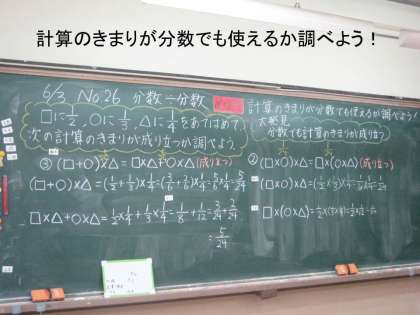 計算のきまりが分数でも使えるか調べよう！
6/3 No.26 分数÷分数
□に1/2、○に1/3、△に1/4をあてはめて、
次の計算のきまりが成り立つか調べよう。
③(□+○)×△=□×△+○×△(成り立つ)
(□+○)×△=(1/2+1/3)×1/4=(3/6+2/6)×1/4=5/6×1/4=5/24
□×△+○×△=1/2×1/4+1/3×1/4=1/8+1/12=3/24+2/24
=5/24
計算のきまりが分数でも使えるか調べよう!
大発見
分数でも計算のきまりが成り立つ
②(□×○)×△=□×(○×△)(成り立つ)
(□×○)×△=(1/2×1/3)×1/4=1/6×1/4=1/24
□×(○×△)=1/2×(1/3×1/4)=1/2×1/12=1/24